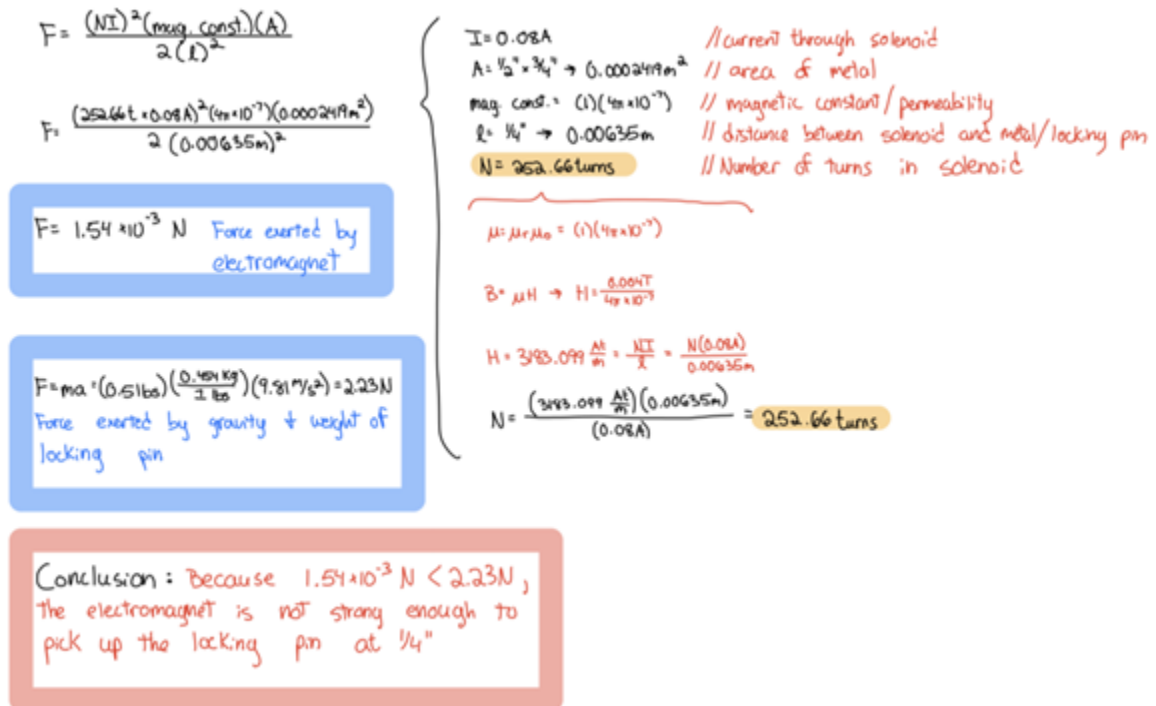 F = (NI)²(mag. const.)(A) / 2(l)²
F = (252.66t × 0.08A)²(4π×10⁻⁷)(0.0002419m²) / 2(0.00635m)²
F = 1.54 × 10⁻³ N Force exerted by
electromagnet
F = ma = (0.5lbs)(0.454 kg / 1 lbs)(9.81 m/s²) = 2.23N
Force exerted by gravity + weight of
locking pin
Conclusion : Because 1.54×10⁻³ N < 2.23N,
the electromagnet is not strong enough to
pick up the locking pin at 1/4"
I = 0.08A //current through solenoid
A = 1/2" × 3/4" → 0.0002419m² // area of metal
mag. const. = (1)(4π×10⁻⁷) // magnetic constant/permeability
l = 1/4" → 0.00635m // distance between solenoid and metal/locking pin
N = 252.66 turns // Number of turns in solenoid
μ = μrμ₀ = (1)(4π×10⁻⁷)
B = μH → H = 0.004T / 4π×10⁻⁷
H = 3183.099 At/m = NI/l = N(0.08A) / 0.00635m
N = (3183.099 At/m)(0.00635m) / (0.08A) = 252.66 turns